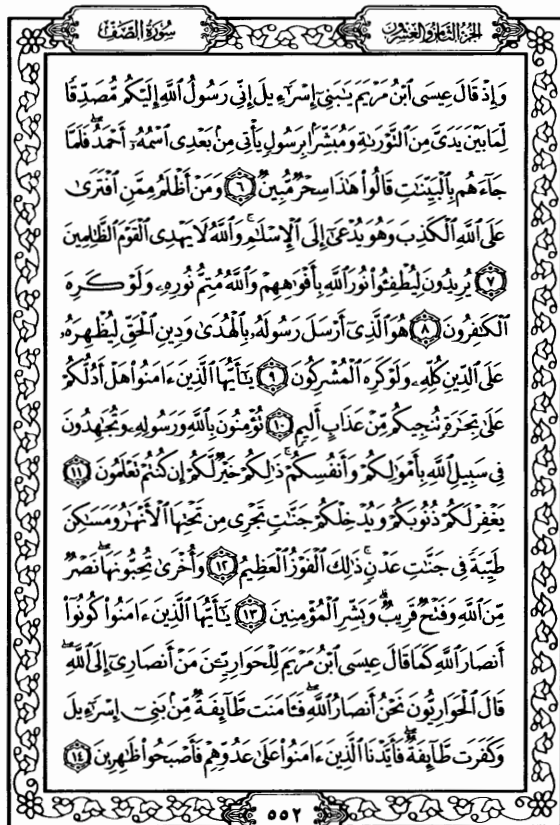 سُورَةُ الصَّفِّ
الجُزْءُ الثَّامِنُ وَالعِشْرُونَ
وَإِذْ قَالَ عِيسَى ٱبْنُ مَرْيَمَ يَـٰبَنِىٓ إِسْرَٰٓءِيلَ إِنِّى رَسُولُ ٱللَّهِ إِلَيْكُم مُّصَدِّقًا
لِّمَا بَيْنَ يَدَىَّ مِنَ ٱلتَّوْرَىٰةِ وَمُبَشِّرًۢا بِرَسُولٍ يَأْتِى مِنۢ بَعْدِى ٱسْمُهُۥٓ أَحْمَدُ ۖ فَلَمَّا
جَآءَهُم بِٱلْبَيِّنَـٰتِ قَالُوا۟ هَـٰذَا سِحْرٌ مُّبِينٌ ٦ وَمَنْ أَظْلَمُ مِمَّنِ ٱفْتَرَىٰ
عَلَى ٱللَّهِ ٱلْكَذِبَ وَهُوَ يُدْعَىٰٓ إِلَى ٱلْإِسْلَـٰمِ ۚ وَٱللَّهُ لَا يَهْدِى ٱلْقَوْمَ ٱلظَّـٰلِمِينَ
٧ يُرِيدُونَ لِيُطْفِـُٔوا۟ نُورَ ٱللَّهِ بِأَفْوَٰهِهِمْ وَٱللَّهُ مُتِمُّ نُورِهِۦ وَلَوْ كَرِهَ
ٱلْكَـٰفِرُونَ ٨ هُوَ ٱلَّذِىٓ أَرْسَلَ رَسُولَهُۥ بِٱلْهُدَىٰ وَدِينِ ٱلْحَقِّ لِيُظْهِرَهُۥ
عَلَى ٱلدِّينِ كُلِّهِۦ وَلَوْ كَرِهَ ٱلْمُشْرِكُونَ ٩ يَـٰٓأَيُّهَا ٱلَّذِينَ ءَامَنُوا۟ هَلْ أَدُلُّكُمْ
عَلَىٰ تِجَـٰرَةٍ تُنجِيكُم مِّنْ عَذَابٍ أَلِيمٍ ١٠ تُؤْمِنُونَ بِٱللَّهِ وَرَسُولِهِۦ وَتُجَـٰهِدُونَ
فِى سَبِيلِ ٱللَّهِ بِأَمْوَٰلِكُمْ وَأَنفُسِكُمْ ۚ ذَٰلِكُمْ خَيْرٌ لَّكُمْ إِن كُنتُمْ تَعْلَمُونَ ١١
يَغْفِرْ لَكُمْ ذُنُوبَكُمْ وَيُدْخِلْكُمْ جَنَّـٰتٍ تَجْرِى مِن تَحْتِهَا ٱلْأَنْهَـٰرُ وَمَسَـٰكِنَ
طَيِّبَةً فِى جَنَّـٰتِ عَدْنٍ ۚ ذَٰلِكَ ٱلْفَوْزُ ٱلْعَظِيمُ ١٢ وَأُخْرَىٰ تُحِبُّونَهَا ۖ نَصْرٌ
مِّنَ ٱللَّهِ وَفَتْحٌ قَرِيبٌ ۗ وَبَشِّرِ ٱلْمُؤْمِنِينَ ١٣ يَـٰٓأَيُّهَا ٱلَّذِينَ ءَامَنُوا۟ كُونُوٓا۟
أَنصَارَ ٱللَّهِ كَمَا قَالَ عِيسَى ٱبْنُ مَرْيَمَ لِلْحَوَارِيِّـۧنَ مَنْ أَنصَارِىٓ إِلَى ٱللَّهِ ۖ
قَالَ ٱلْحَوَارِيُّونَ نَحْنُ أَنصَارُ ٱللَّهِ ۖ فَـَٔامَنَت طَّآئِفَةٌ مِّنۢ بَنِىٓ إِسْرَٰٓءِيلَ
وَكَفَرَت طَّآئِفَةٌ ۖ فَأَيَّدْنَا ٱلَّذِينَ ءَامَنُوا۟ عَلَىٰ عَدُوِّهِمْ فَأَصْبَحُوا۟ ظَـٰهِرِينَ ١٤
٥٥٢